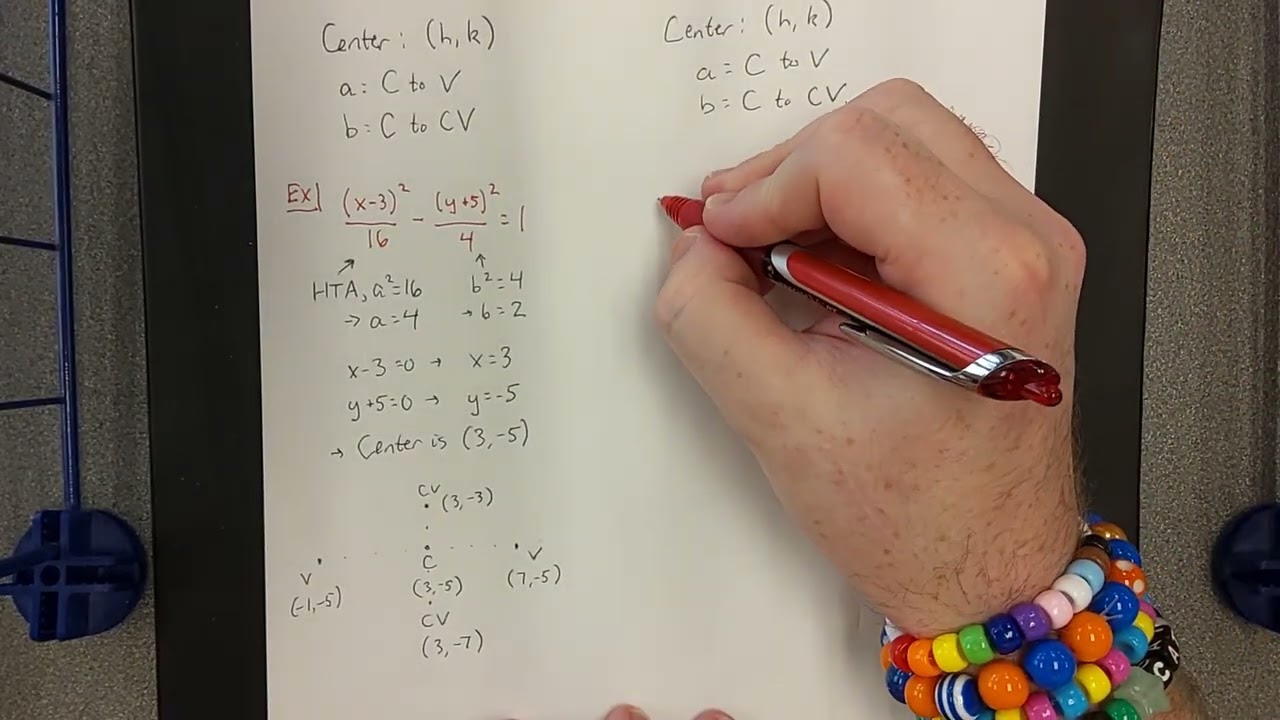 Center: (h, k)
a = C to V
b = C to CV
Ex1 (x-3)²/16 - (y+5)²/4 = 1
HTA, a²=16
→ a=4
b²=4
→ b=2
x-3=0 → x=3
y+5=0 → y=-5
→ Center is (3,-5)
CV
(3,-3)
V
(-1,-5)
C
(3,-5)
V
(7,-5)
CV
(3,-7)
Center: (h, k)
a = C to V
b = C to CV